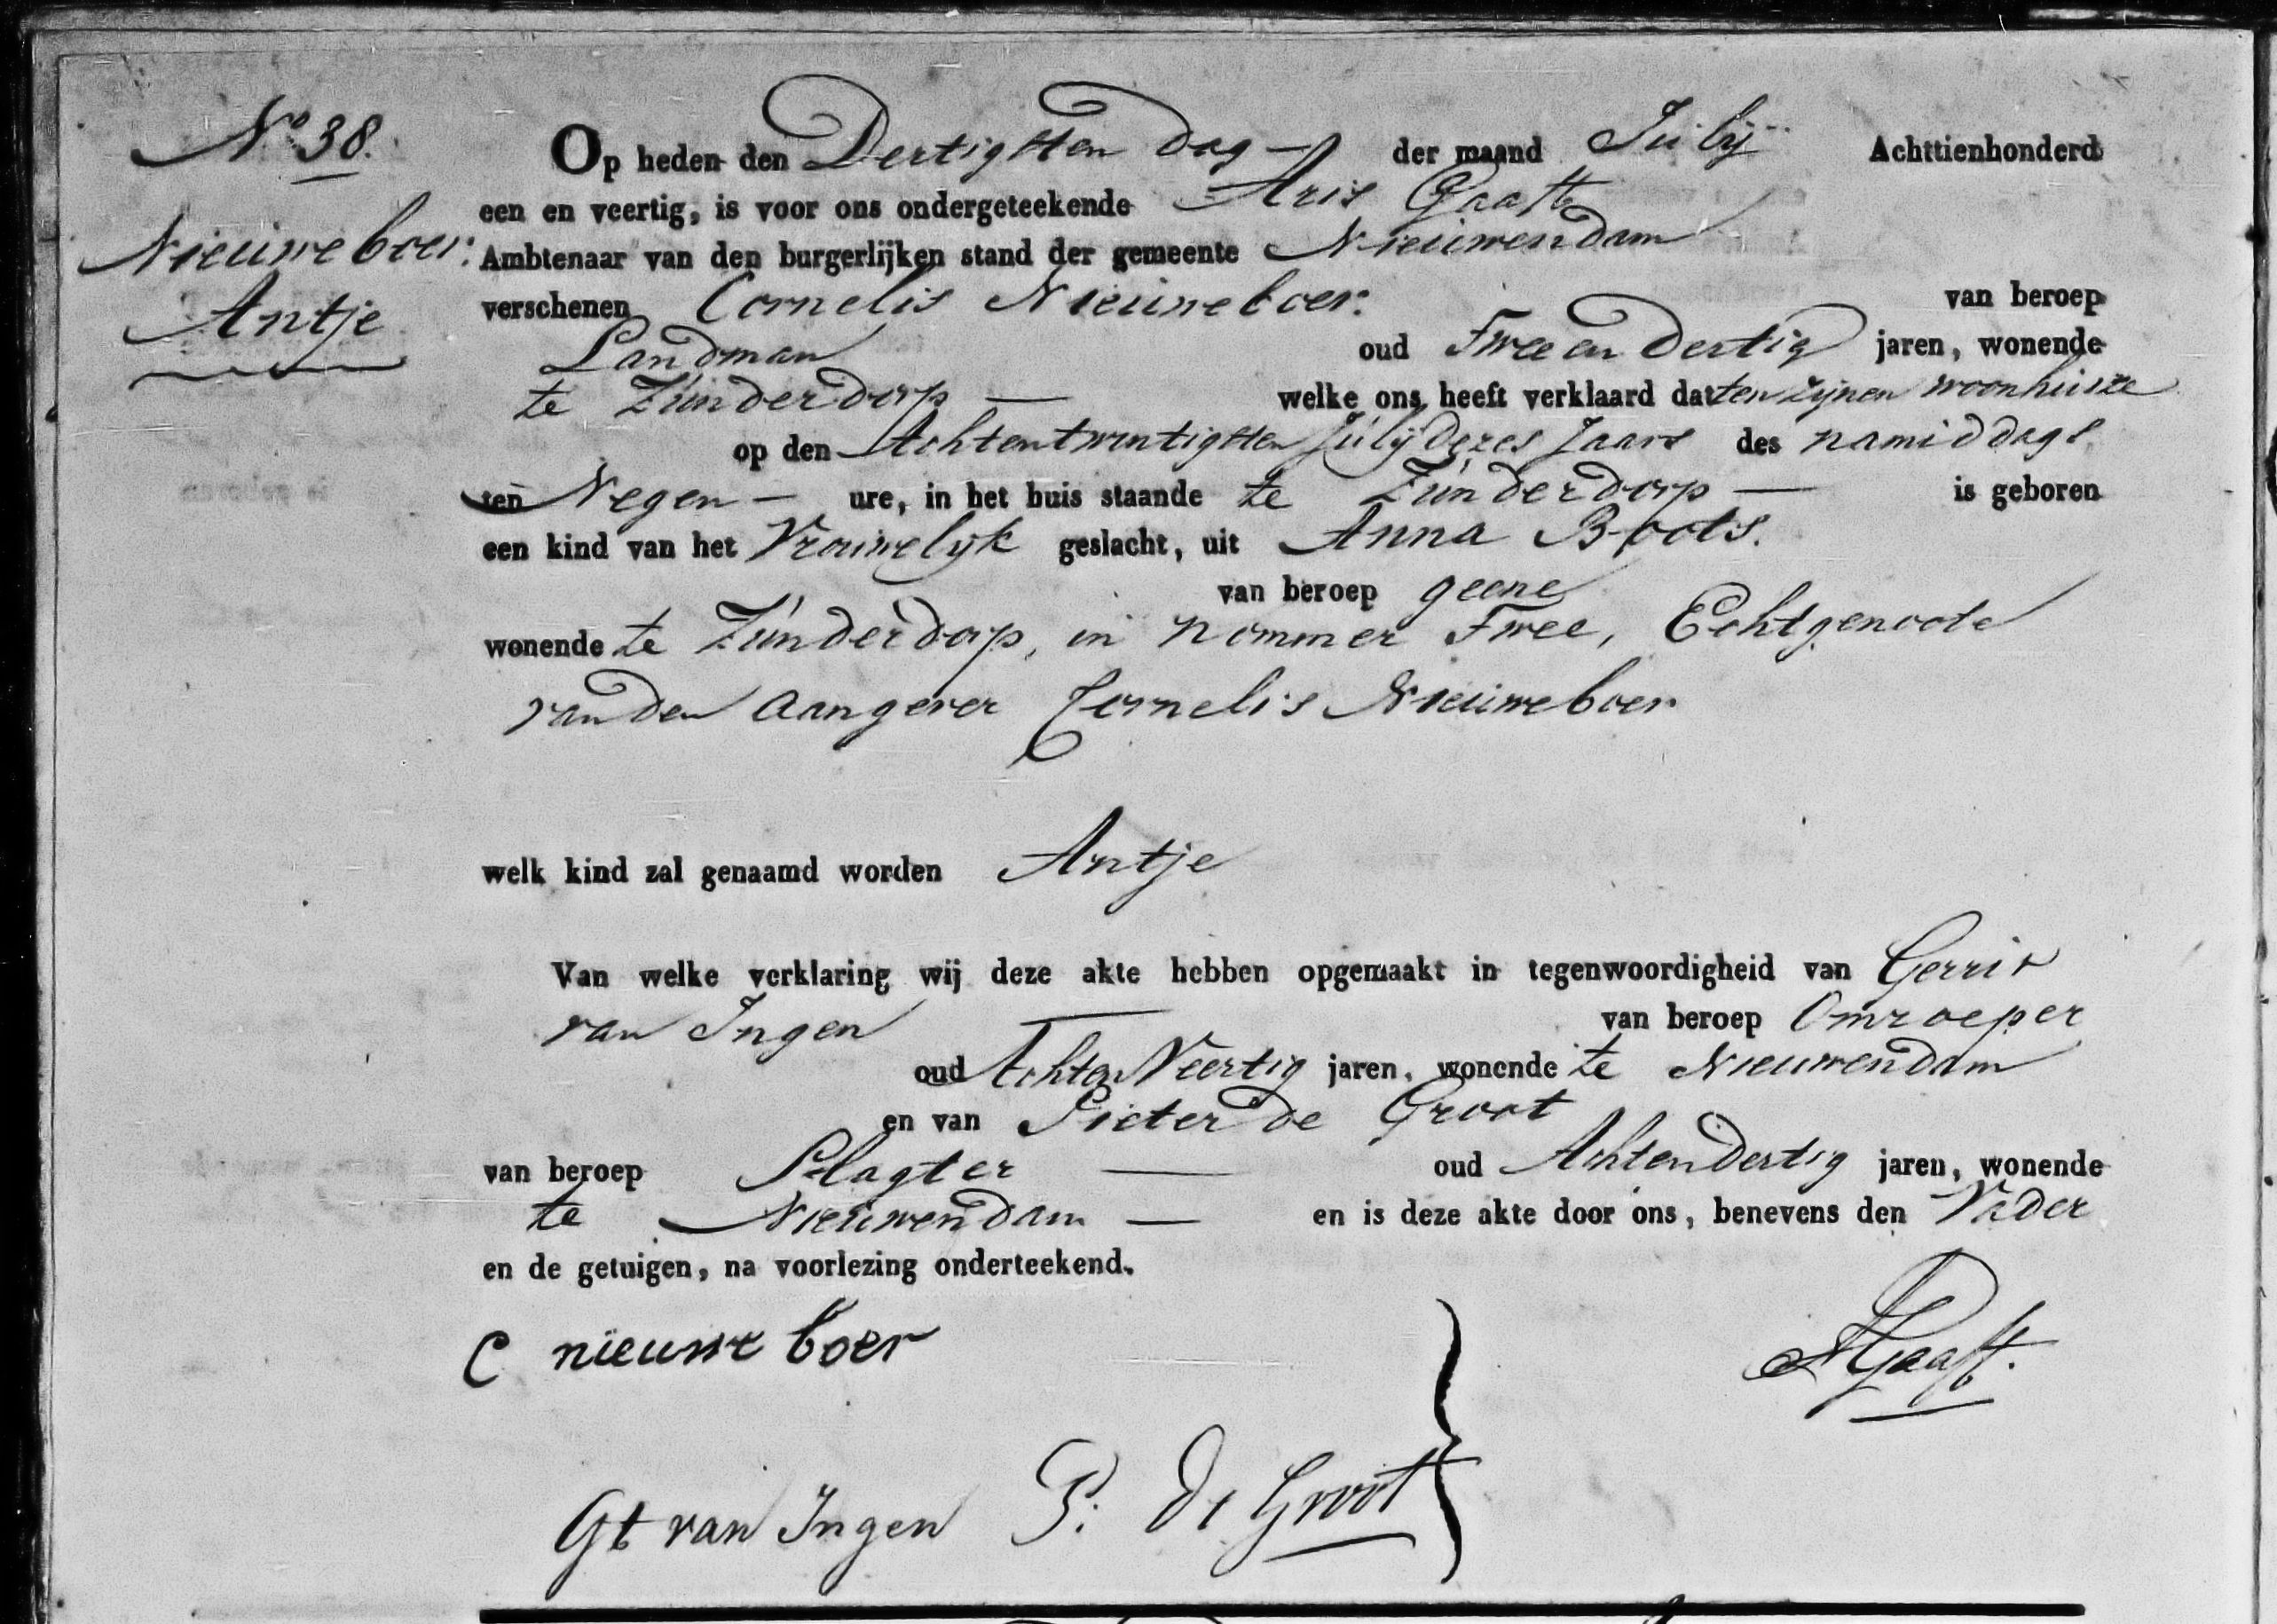 No 38.
Nieuweboer.
Antje
Op heden den Dertigsten dag — der maand Julij Achttienhonderd
een en veertig, is voor ons ondergeteekende Aris Gaaft
Ambtenaar van den burgerlijken stand der gemeente Nieuwendam
verschenen Cornelis Nieuweboer. van beroep
Landman oud Twee en Dertig jaren, wonende
te Zunderdorp — welke ons heeft verklaard dat ten zijnen woonhuize
op den Achtentwintigsten Julij dezes Jaars des namiddags
ten Negen — ure, in het huis staande te Zunderdorp — is geboren
een kind van het Vrouwelijk geslacht, uit Anna Boots.
van beroep geene
wonende te Zunderdorp, in nommer Twee, Echtgenoote
van den aangever Cornelis Nieuweboer
welk kind zal genaamd worden Antje
Van welke verklaring wij deze akte hebben opgemaakt in tegenwoordigheid van Gerrit
van Ingen — van beroep Omroeper
oud AchtenVeertig jaren, wonende te Nieuwendam
en van Pieter de Groot
van beroep Slagter — oud Achtendertig jaren, wonende
te Nieuwendam — en is deze akte door ons, benevens den Vader
en de getuigen, na voorlezing onderteekend.
C nieuwe boer
AGaaft.
Gt van Ingen P. de Groot